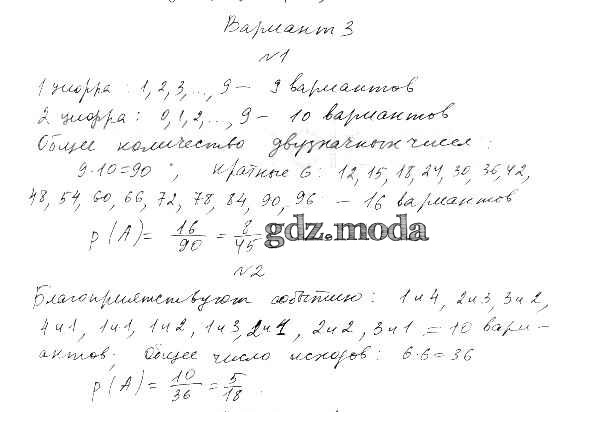 Вариант 3
№1
1 цифра: 1, 2, 3, ..., 9 – 9 вариантов
2 цифра: 0, 1, 2, ..., 9 – 10 вариантов
Общее количество двузначных чисел:
9·10=90; кратные 6: 12, 15, 18, 24, 30, 36, 42,
48, 54, 60, 66, 72, 78, 84, 90, 96 – 16 вариантов
p(A)= 16/90 = 8/45
gdz.moda
№2
Благоприятствуют событию: 1и4, 2и3, 3и2,
4и1, 1и1, 1и2, 1и3, 2и1, 2и2, 3и1 = 10 вари-
антов; Общее число исходов: 6·6=36
p(A)= 10/36 = 5/18.